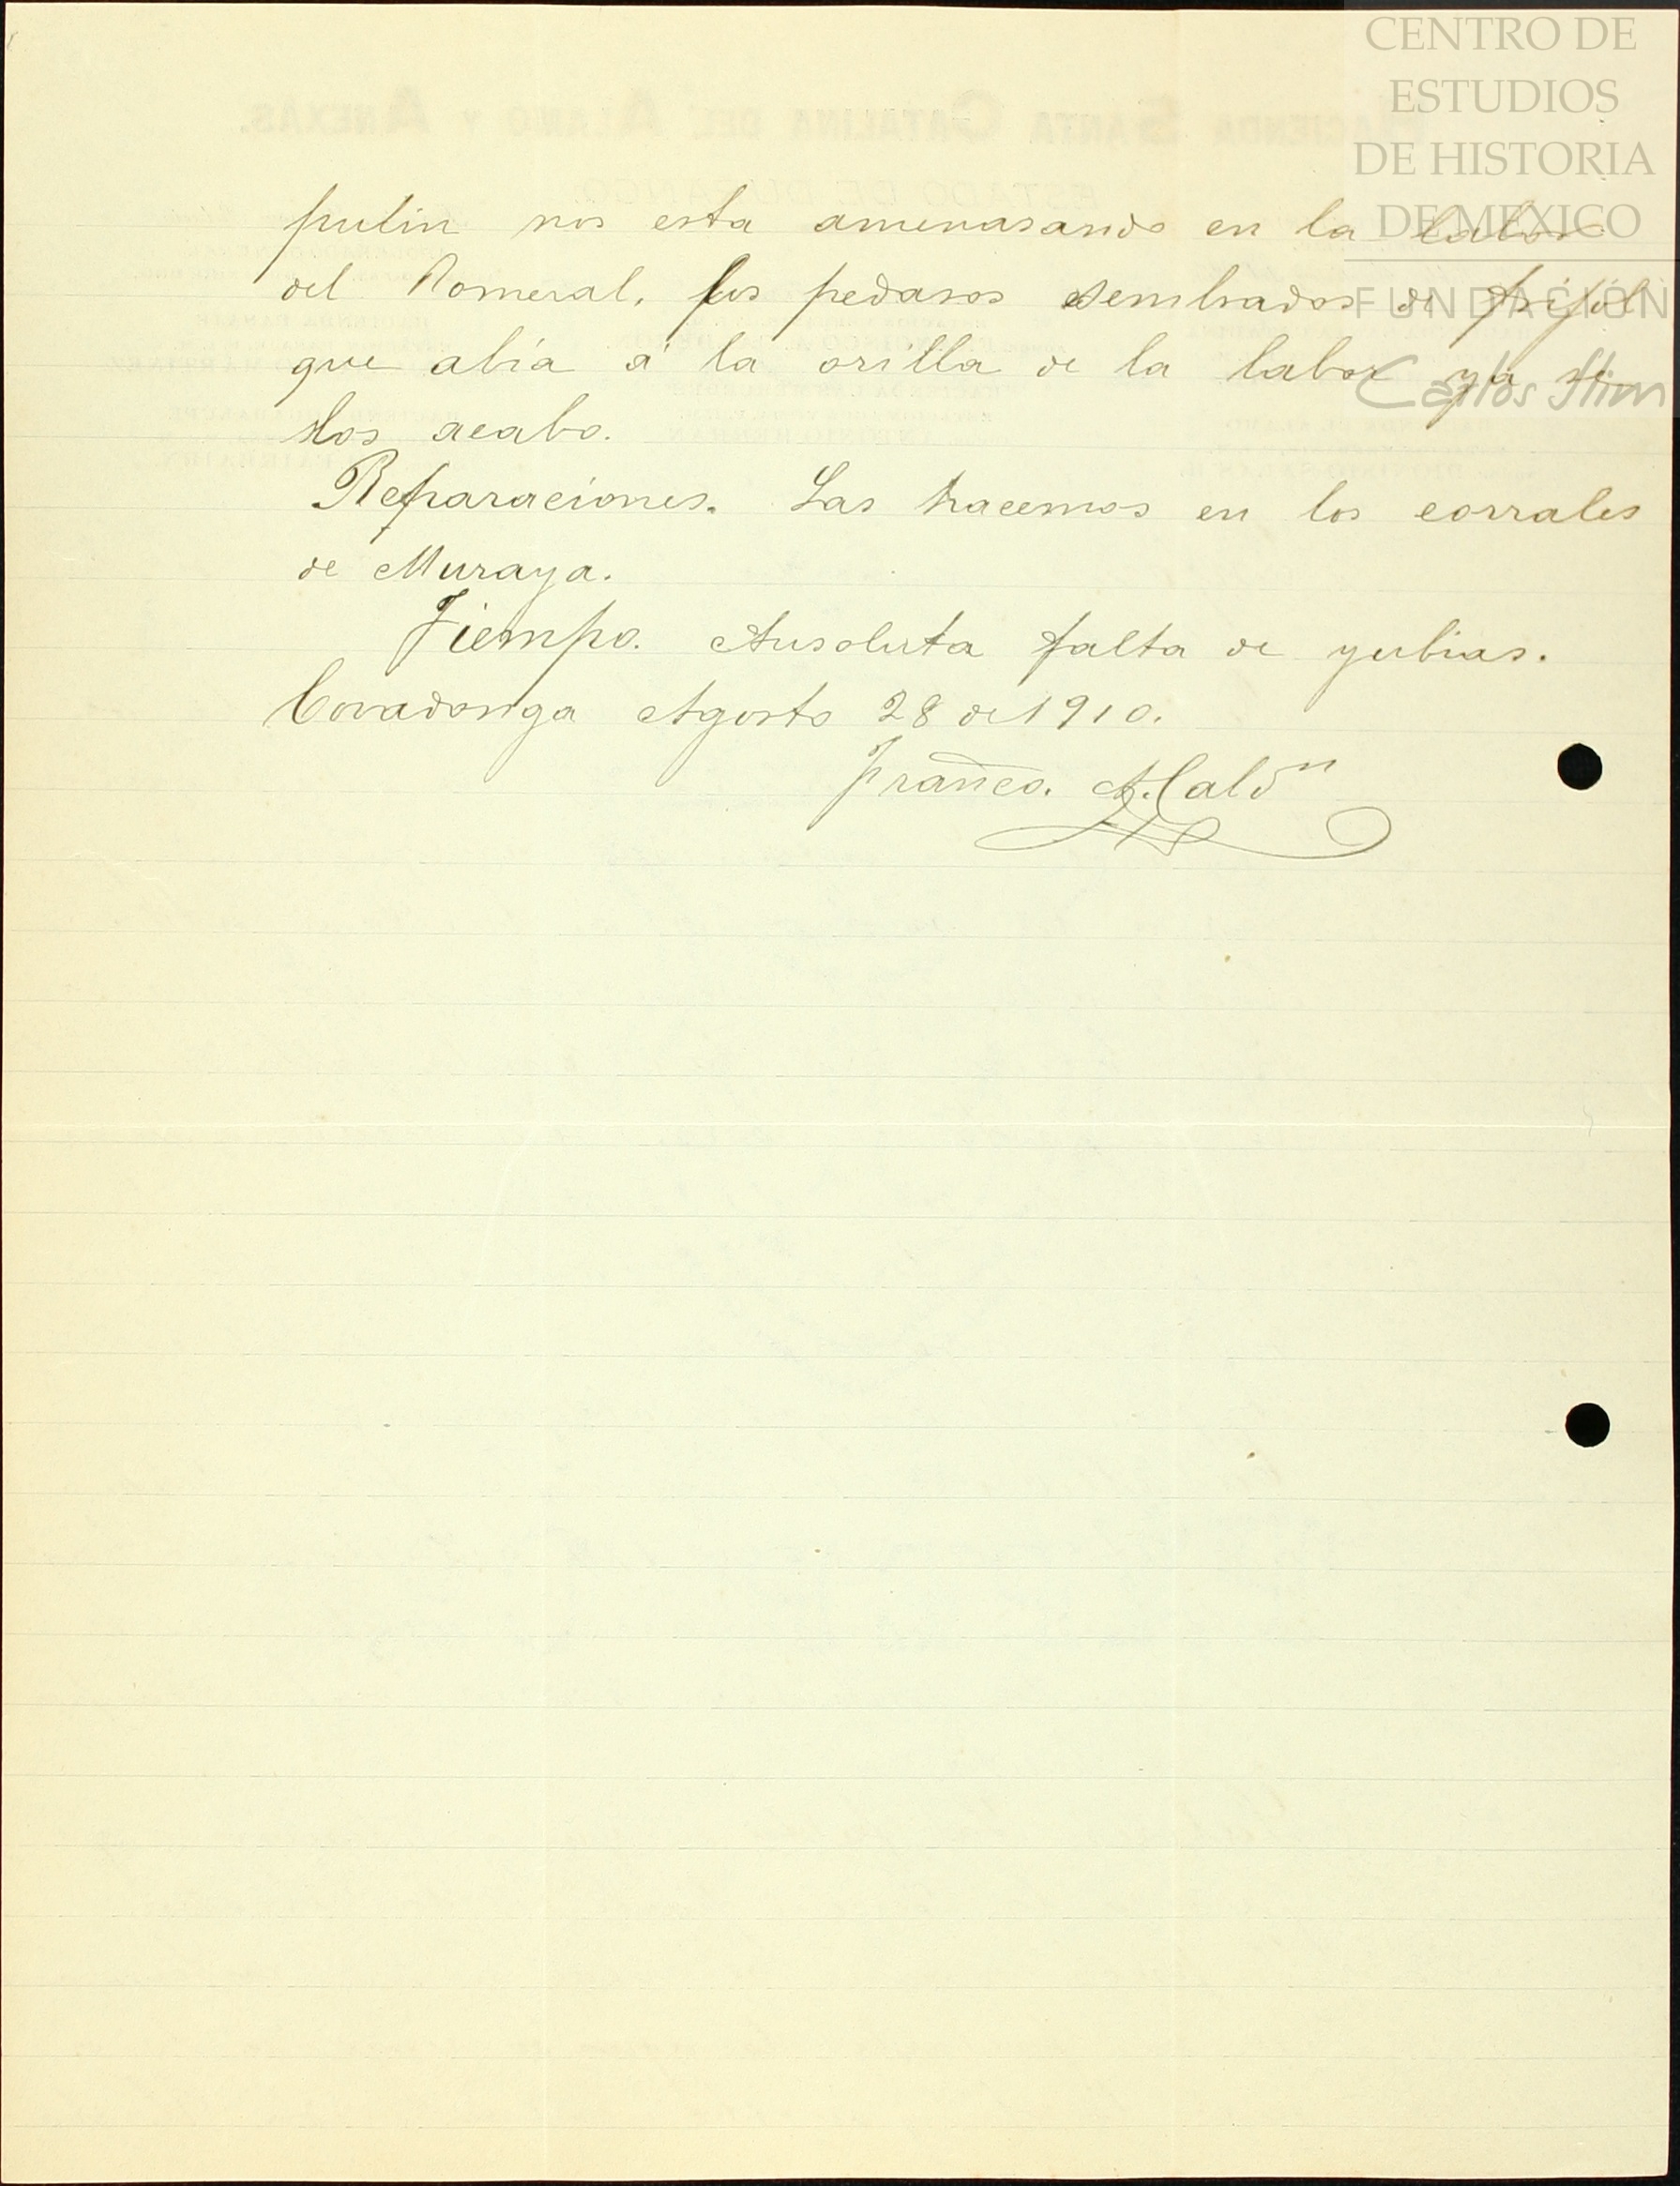 CENTRO DE
ESTUDIOS
DE HISTORIA
DE MEXICO
FUNDACIÓN
Carlos Slim
HACIENDA SANTA CATALINA DEL ALAMO Y ANEXAS.
ESTADO DE DURANGO
pulin nos esta amenasando en la labor
del Romeral, los pedasos sembrados de frijol
que abía á la orilla de la labor ya se
los acabo.
Reparaciones. Las hacemos en los corrales
de Muraya.
Tiempo. Ausoluta falta de yubias.
Covadonga Agosto 28 de 1910.
Franco. A. Calön